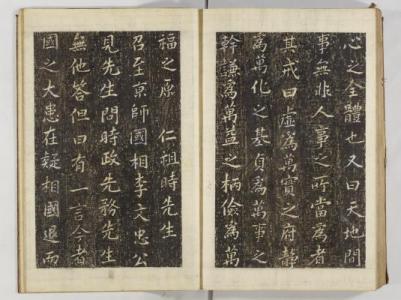 心之全體也又曰天地間
事無非人事之所當爲者
其戒曰虛爲萬實之府靜
爲萬化之基貞爲萬事之
幹謙爲萬益之柄儉爲萬
福之原 仁祖時先生
召至京師國相李文忠公
見先生問時政先務先生
無他答但曰有一言今者
國之大患在疑相國退而